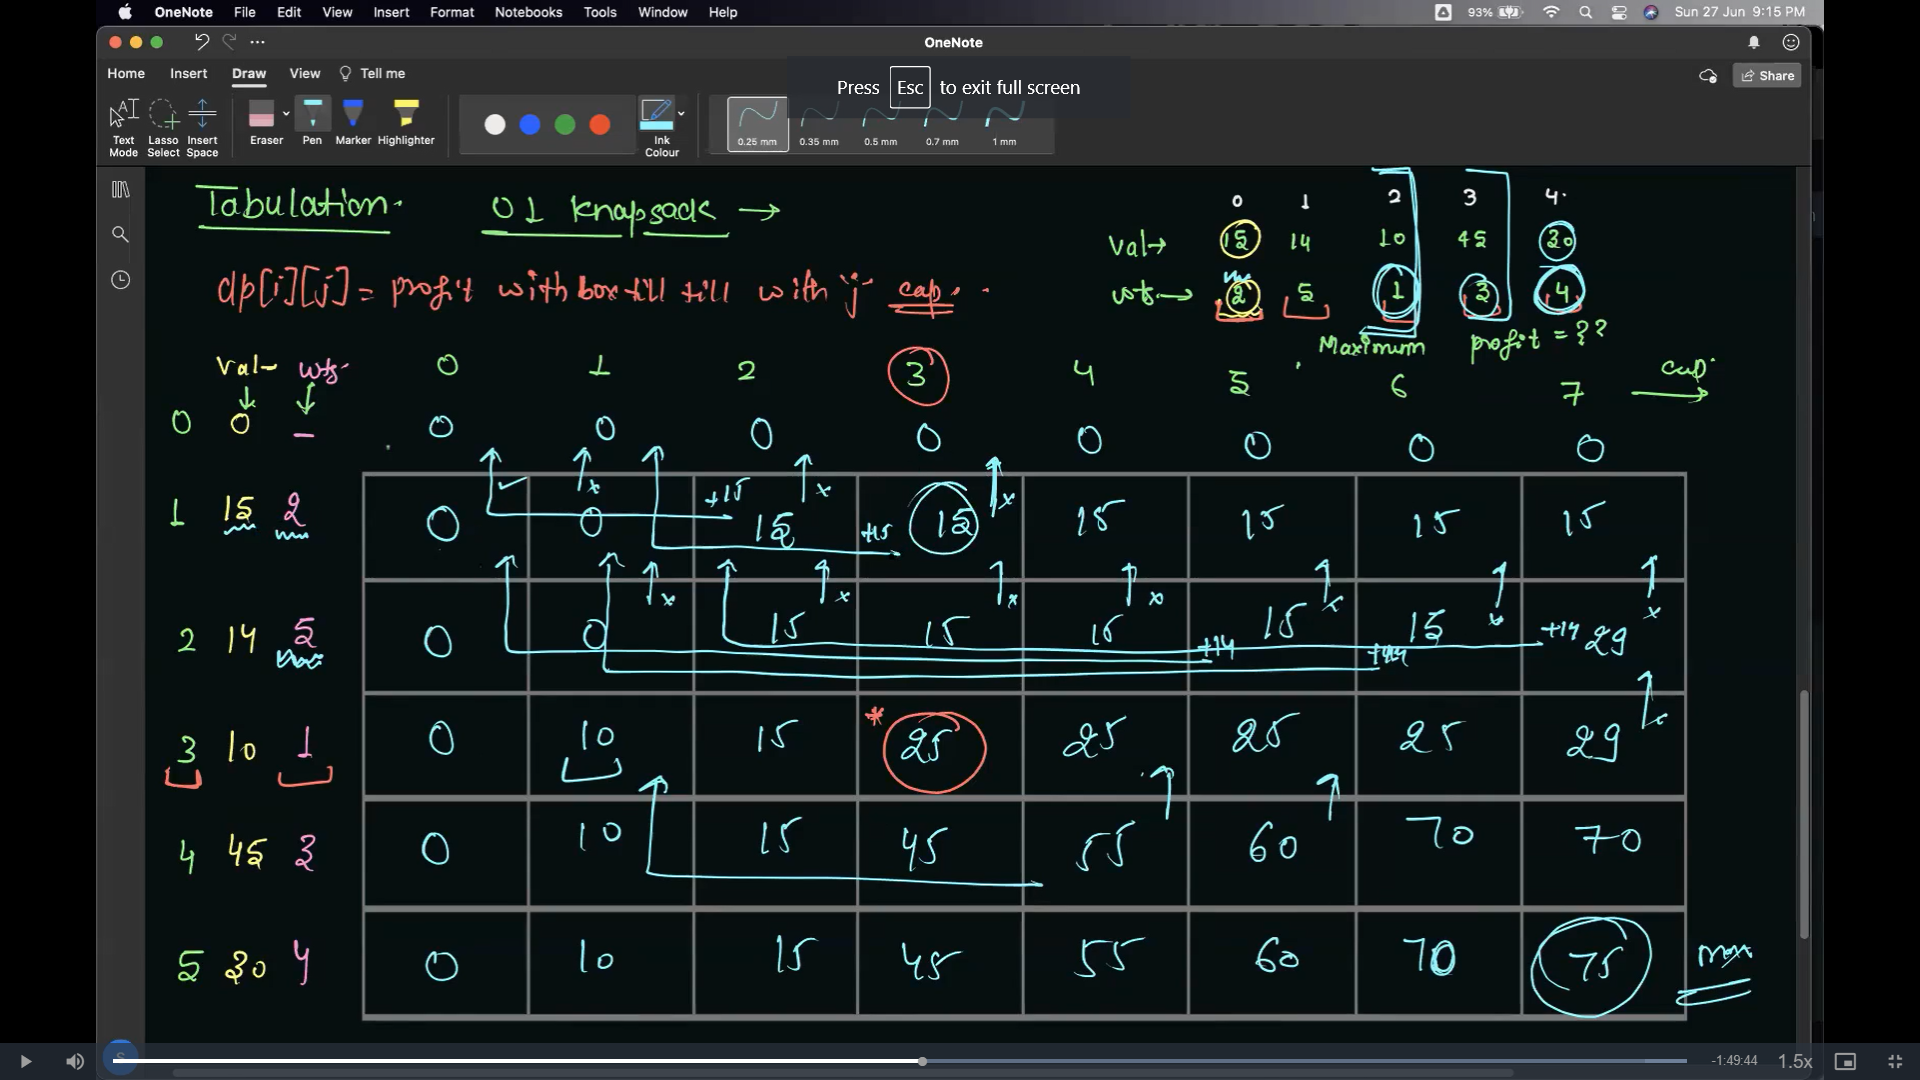 OneNote File Edit View Insert Format Notebooks Tools Window Help 93% Sun 27 Jun 9:15 PM
OneNote
Home Insert Draw View Tell me Share
Press Esc to exit full screen
Text Mode Lasso Select Insert Space Eraser Pen Marker Highlighter Ink Colour 0.25 mm 0.35 mm 0.5 mm 0.7 mm 1 mm
Tabulation. 01 knapsack →
0 1 2 3 4.
val→ 15 14 10 45 30
wts.→ 2 5 1 3 4
dp[i][j] = profit with box till till with 'j' cap.
Maximum profit = ??
val wts. 0 1 2 3 4 5 6 7 cap.
0 0 – 0 0 0 0 0 0 0 0
x +15 x x
1 15 2 0 0 15 +15 15 15 15 15 15
x x x x x x x
2 14 5 0 0 15 15 15 +14 15 +14 15 +14 29
3 10 1 0 10 15 * 25 25 25 25 29
4 45 3 0 10 15 45 55 60 70 70
5 30 4 0 10 15 45 55 60 70 75 max
S -1:49:44 1.5x